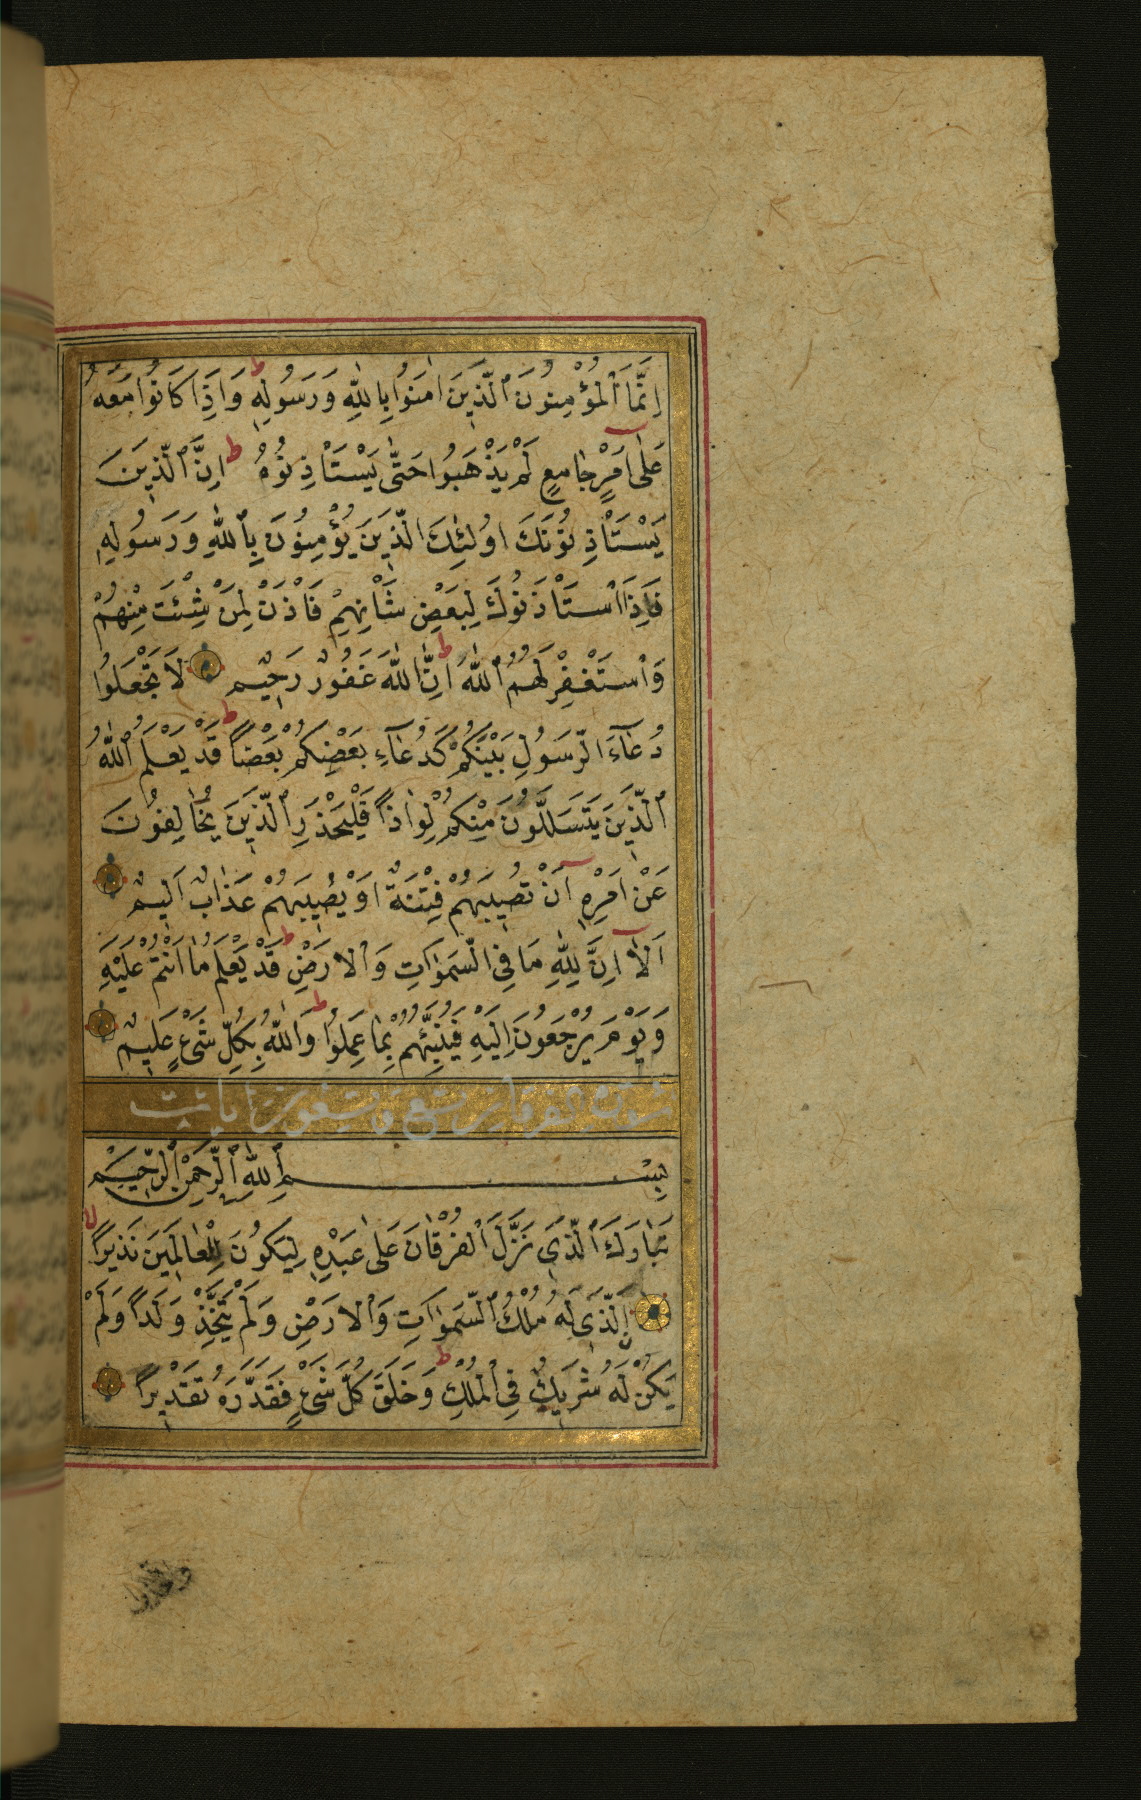 اِنَّمَا ٱلْمُؤْمِنُونَ ٱلَّذِينَ اٰمَنُوا بِاللّٰهِ وَرَسُولِهِ وَاِذَا كَانُوا مَعَهُ
عَلٰى اَمْرٍ جَامِعٍ لَمْ يَذْهَبُوا حَتّٰى يَسْتَأْذِنُوهُ ط اِنَّ ٱلَّذِينَ
يَسْتَأْذِنُونَكَ اُولٰئِكَ الَّذِينَ يُؤْمِنُونَ بِٱللّٰهِ وَرَسُولِهِ
فَاِذَا ٱسْتَأْذَنُوكَ لِبَعْضِ شَأْنِهِمْ فَأْذَنْ لِمَنْ شِئْتَ مِنْهُمْ
وَٱسْتَغْفِرْ لَهُمُ ٱللّٰهَ ط اِنَّ اللّٰهَ غَفُورٌ رَحِيمٌ لَا تَجْعَلُوا
دُعَآءَ الرَّسُولِ بَيْنَكُمْ كَدُعَآءِ بَعْضِكُمْ بَعْضًا ط قَدْ يَعْلَمُ ٱللّٰهُ
ٱلَّذِينَ يَتَسَلَّلُونَ مِنْكُمْ لِوَاذًا فَلْيَحْذَرِ ٱلَّذِينَ يُخَالِفُونَ
عَنْ اَمْرِهِ اَنْ تُصِيبَهُمْ فِتْنَةٌ اَوْ يُصِيبَهُمْ عَذَابٌ اَلِيمٌ
اَلَآ اِنَّ لِلّٰهِ مَا فِي السَّمٰوَاتِ وَٱلْاَرْضِ ط قَدْ يَعْلَمُ مَا اَنْتُمْ عَلَيْهِ
وَيَوْمَ يُرْجَعُونَ اِلَيْهِ فَيُنَبِّئُهُمْ بِمَا عَمِلُوا ط وَاللّٰهُ بِكُلِّ شَيْءٍ عَلِيمٌ
سورة الفرقان سبع وسبعون ايات
بِسْمِ ٱللّٰهِ ٱلرَّحْمٰنِ ٱلرَّحِيمِ
تَبَارَكَ ٱلَّذِي نَزَّلَ ٱلْفُرْقَانَ عَلٰى عَبْدِهِ لِيَكُونَ لِلْعَالَمِينَ نَذِيرًا لا
اِلَّذِي لَهُ مُلْكُ ٱلسَّمٰوَاتِ وَٱلْاَرْضِ وَلَمْ يَتَّخِذْ وَلَدًا وَلَمْ
يَكُنْ لَهُ شَرِيكٌ فِي ٱلْمُلْكِ ط وَخَلَقَ كُلَّ شَيْءٍ فَقَدَّرَهُ تَقْدِيرًا